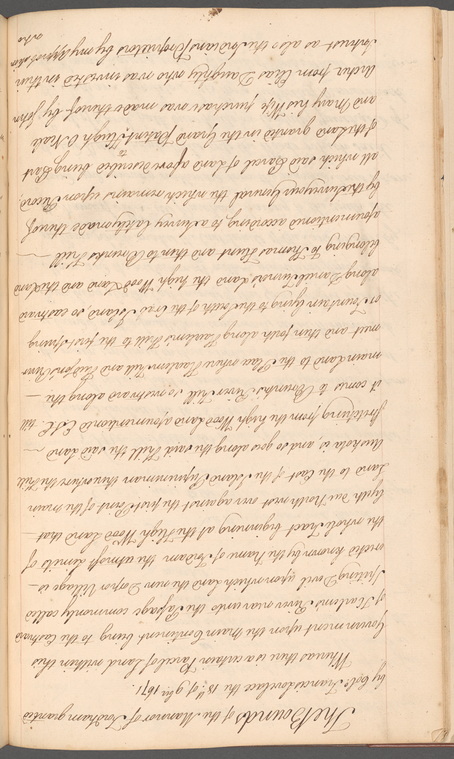 The Bounds of the Mannor of Fordham granted
by Coll. Francis Lovelace the 13th of 9ber 1671.
Whereas there is a certain Parcel of Land within this
Government upon the main Continent lying to the Eastward
of Harlems River near unto the Passage commonly called
Spiting Devil upon which Land the new Dorpe or Village is
erected known by the Name of Fordham the utmost Limits of
the whole Tract beginning at the High Wood Land that
lyeth due North west over against the first Point of the main
Land to the East of the Island Papirinemin there where the Kill
Auskeda is, and so goes along the said Kill the said Land
stretching from the high Wood Land aforementioned E. S. E. till
it come to Brunks's River Kill, so westward along the
main Land to the Place where Harlem Kill and Hudsons River
meet and then forth along Harlem Kill to the first Spring
or Fountain lying to the South of the Crab Island, so eastward
along Daniel Turners Land the high Wood Land and the Land
belonging to Thomas Hunt and then to Brunks Kill
aforementioned according to a survey lately made thereof
by the Surveyour General the which remains upon Record,
all which said Parcel of Land afore described being Part
of the Land granted in the Grand Patent to Hugh O Neale
and Mary his Wife purchase was made thereof by John
Archer from Elias Doughty who was invested in their
Interest as also the Indians Proprietors by my Approbation
who